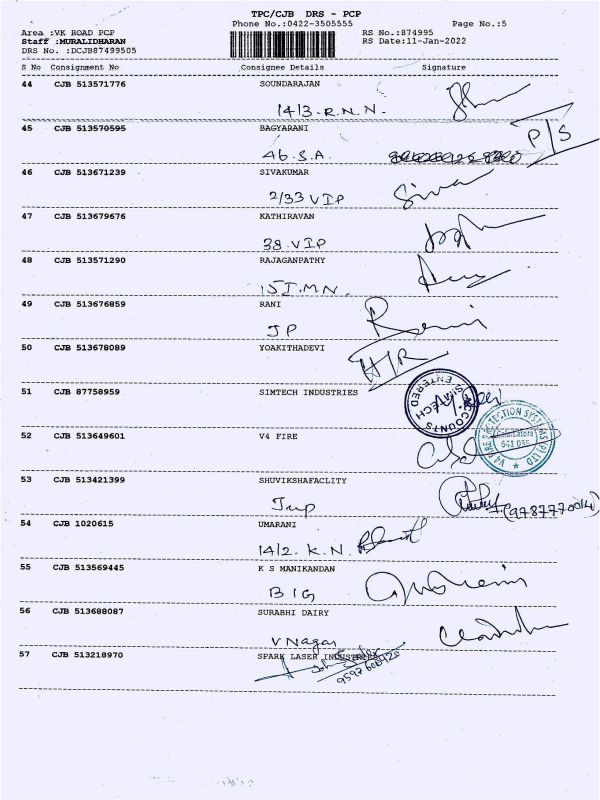 TPC/CJB DRS - PCP
Phone No.:0422-3505555 Page No.:5
Area :VK ROAD PCP RS No.:874995
Staff :MURALIDHARAN RS Date:11-Jan-2022
DRS No. :DCJB87499505
S No Consignment No Consignee Details Signature
44 CJB 513571776 SOUNDARAJAN
14/3.R.N.N.
45 CJB 513570595 BAGYARANI P/S
46.S.A
46 CJB 513671239 SIVAKUMAR
2/33 VIP Siva
47 CJB 513679676 KATHIRAVAN
38 VIP
48 CJB 513571290 RAJAGANPATHY
15I.M.N.
49 CJB 513676859 RANI
JP Rani
50 CJB 513678089 YOAKITHADEVI
H/R
51 CJB 87758959 SIMTECH INDUSTRIES
SIMTECH ACCOUNTS ENTERED
52 CJB 513649601 V4 FIRE
V4 FIRE PROTECTION SYSTEMS (P) LTD
Coimbatore
641 035
53 CJB 513421399 SHUVIKSHAFACLITY
54 CJB 1020615 UMARANI
14/2. K.N.
55 CJB 513569445 K S MANIKANDAN
BIG
56 CJB 513688087 SURABHI DAIRY
V Nagar
57 CJB 513218970 SPARK LASER INDUSTRIES